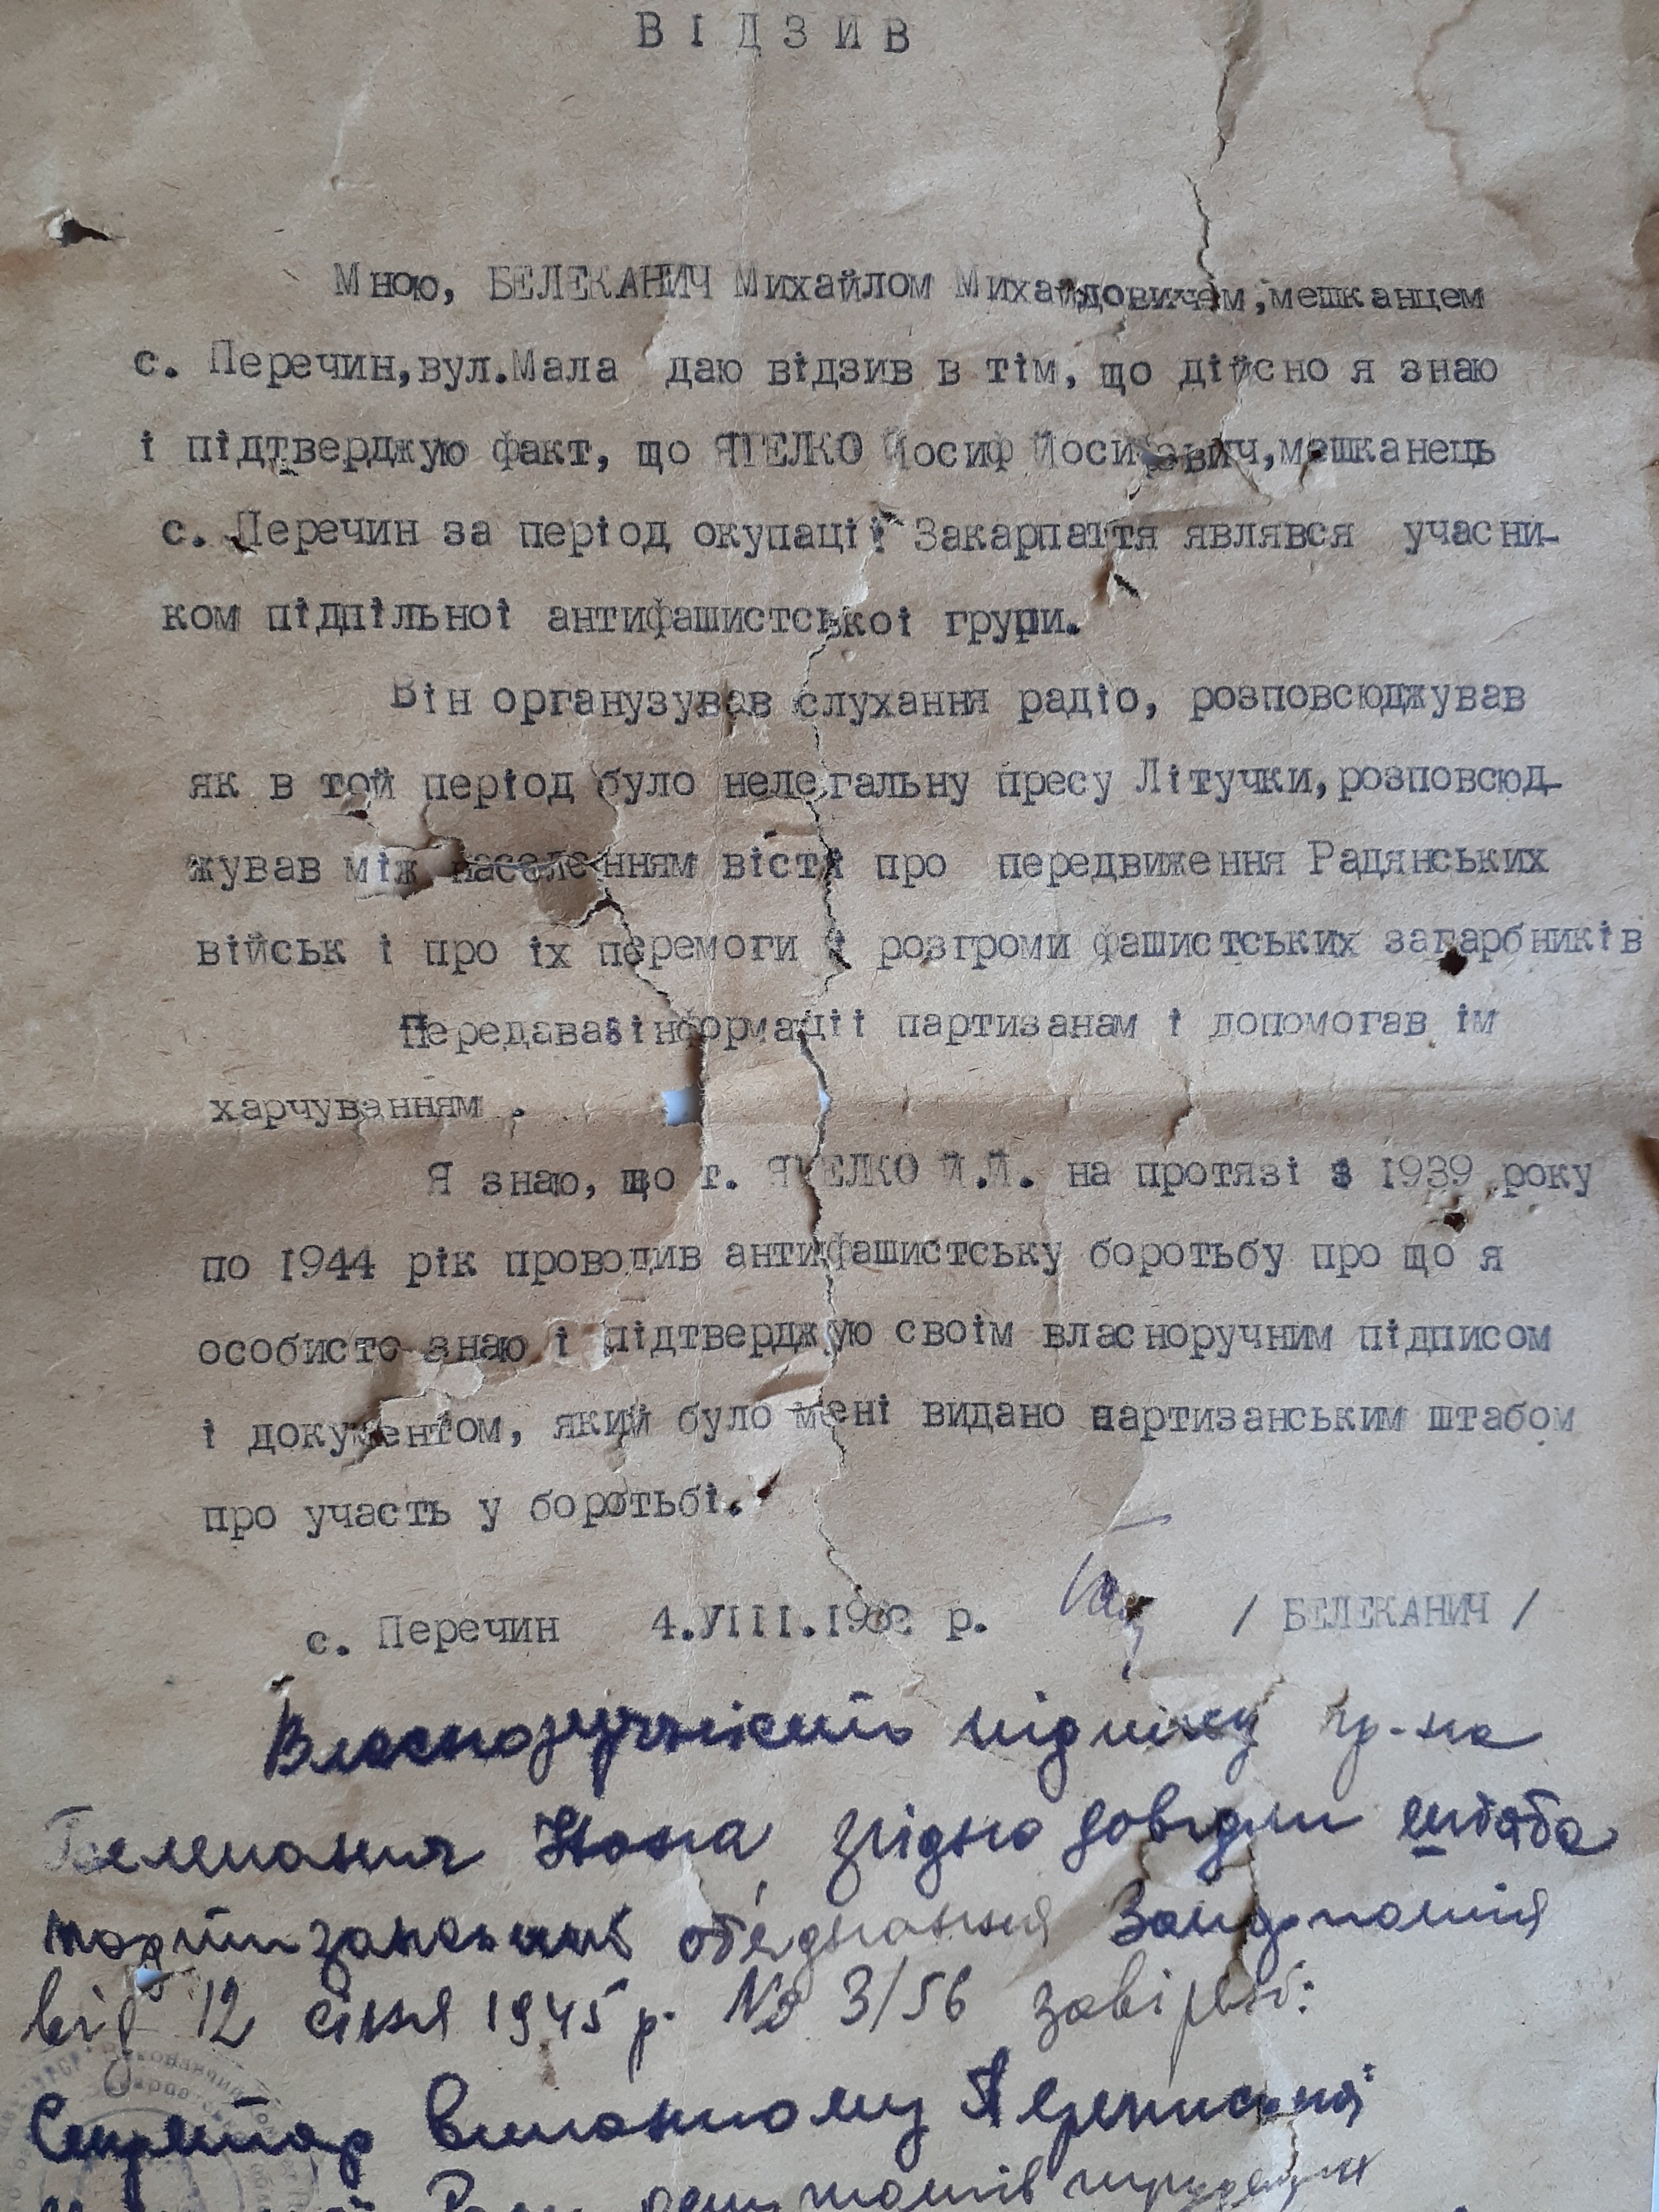 ВІДЗИВ
Мною, БЕЛЕКАНИЧ Михайлом Михайловичем, мешканцем
с. Перечин, вул. Мала даю відзив в тім, що дійсно я знаю
і підтверджую факт, що ЯГЕЛКО Йосиф Йосифович, мешканець
с. Перечин за період окупації Закарпаття являвся учасни-
ком підпільноі антифашистськоі групи.
Він органузував слухання радіо, розповсюджував
як в той період було нелегальну пресу Літучки, розповсюд-
жував між населенням вістя про передвиження Радянських
військ і про іх перемоги і розгроми фашистських загарбників
Передавав інформаціі партизанам і допомогав ім
харчуванням.
Я знаю, що т. ЯГЕЛКО Й.Й. на протязі з 1939 року
по 1944 рік проводив антифашистську боротьбу про що я
особисто знаю і підтверджую своім власноручним підписом
і документом, який було мені видано партизанським штабом
про участь у боротьбі.
с. Перечин 4.УІІІ. р. / БЕЛЕКАНИЧ /
підпису гр-на
згідно довідки штаба
партизанських об'єднання
від 12 січня 1945 р. № 3/56 завіряю:
Секретар виконкому Перечинської
Ради депутатів трудящих